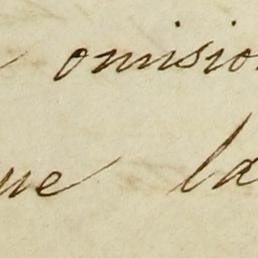 omision
que la